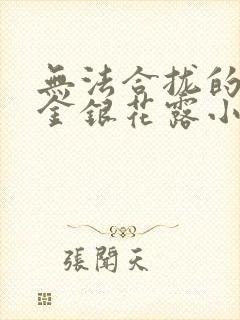 無法合拢的
金銀花露小
張聞天